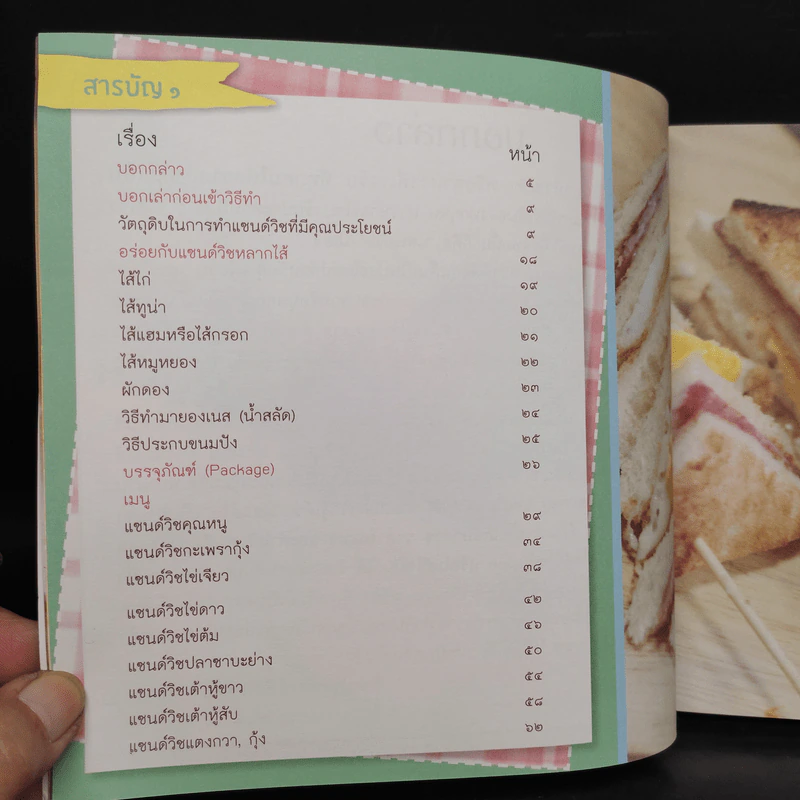 สารบัญ ๑
เรื่อง หน้า
บอกกล่าว ๕
บอกเล่าก่อนเข้าวิธีทำ ๙
วัตถุดิบในการทำแซนด์วิชที่มีคุณประโยชน์ ๙
อร่อยกับแซนด์วิชหลากไส้ ๑๘
ไส้ไก่ ๑๙
ไส้ทูน่า ๒๐
ไส้แฮมหรือไส้กรอก ๒๑
ไส้หมูหยอง ๒๒
ผักดอง ๒๓
วิธีทำมายองเนส (น้ำสลัด) ๒๔
วิธีประกบขนมปัง ๒๕
บรรจุภัณฑ์ (Package) ๒๖
เมนู
แซนด์วิชคุณหนู ๒๙
แซนด์วิชกะเพรากุ้ง ๓๔
แซนด์วิชไข่เจียว ๓๘
แซนด์วิชไข่ดาว ๔๒
แซนด์วิชไข่ต้ม ๔๖
แซนด์วิชปลาซาบะย่าง ๕๐
แซนด์วิชเต้าหู้ขาว ๕๔
แซนด์วิชเต้าหู้สับ ๕๘
แซนด์วิชแตงกวา, กุ้ง ๖๒